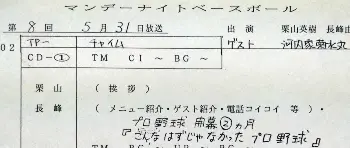 マンデーナイトベースボール
第 8 回 5 月 31 日放送 出 演 栗山英樹 長峰由
ゲスト 河内家菊水丸
02 TP- チャイム
CD-① TM CI ~ BG ~
栗山 ( 挨拶 )
長峰 ( メニュー紹介・ゲスト紹介・電話コイコイ 等 )・
プロ野球 開幕②ヵ月
『こんなはずじゃなかった プロ野球』